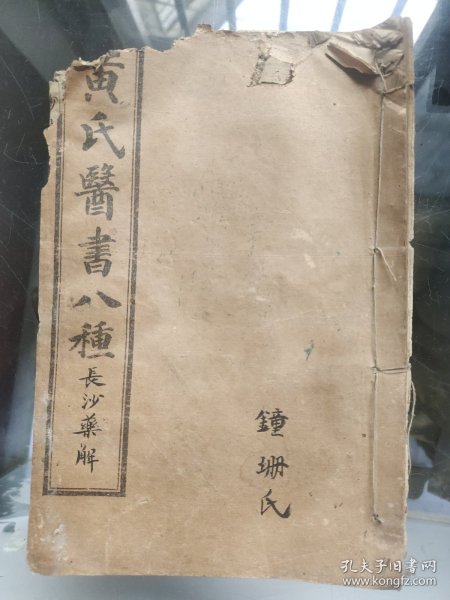 黄氏醫書八種
長沙藥解
鐘珊氏
孔夫子旧书网
www.kongfz.com